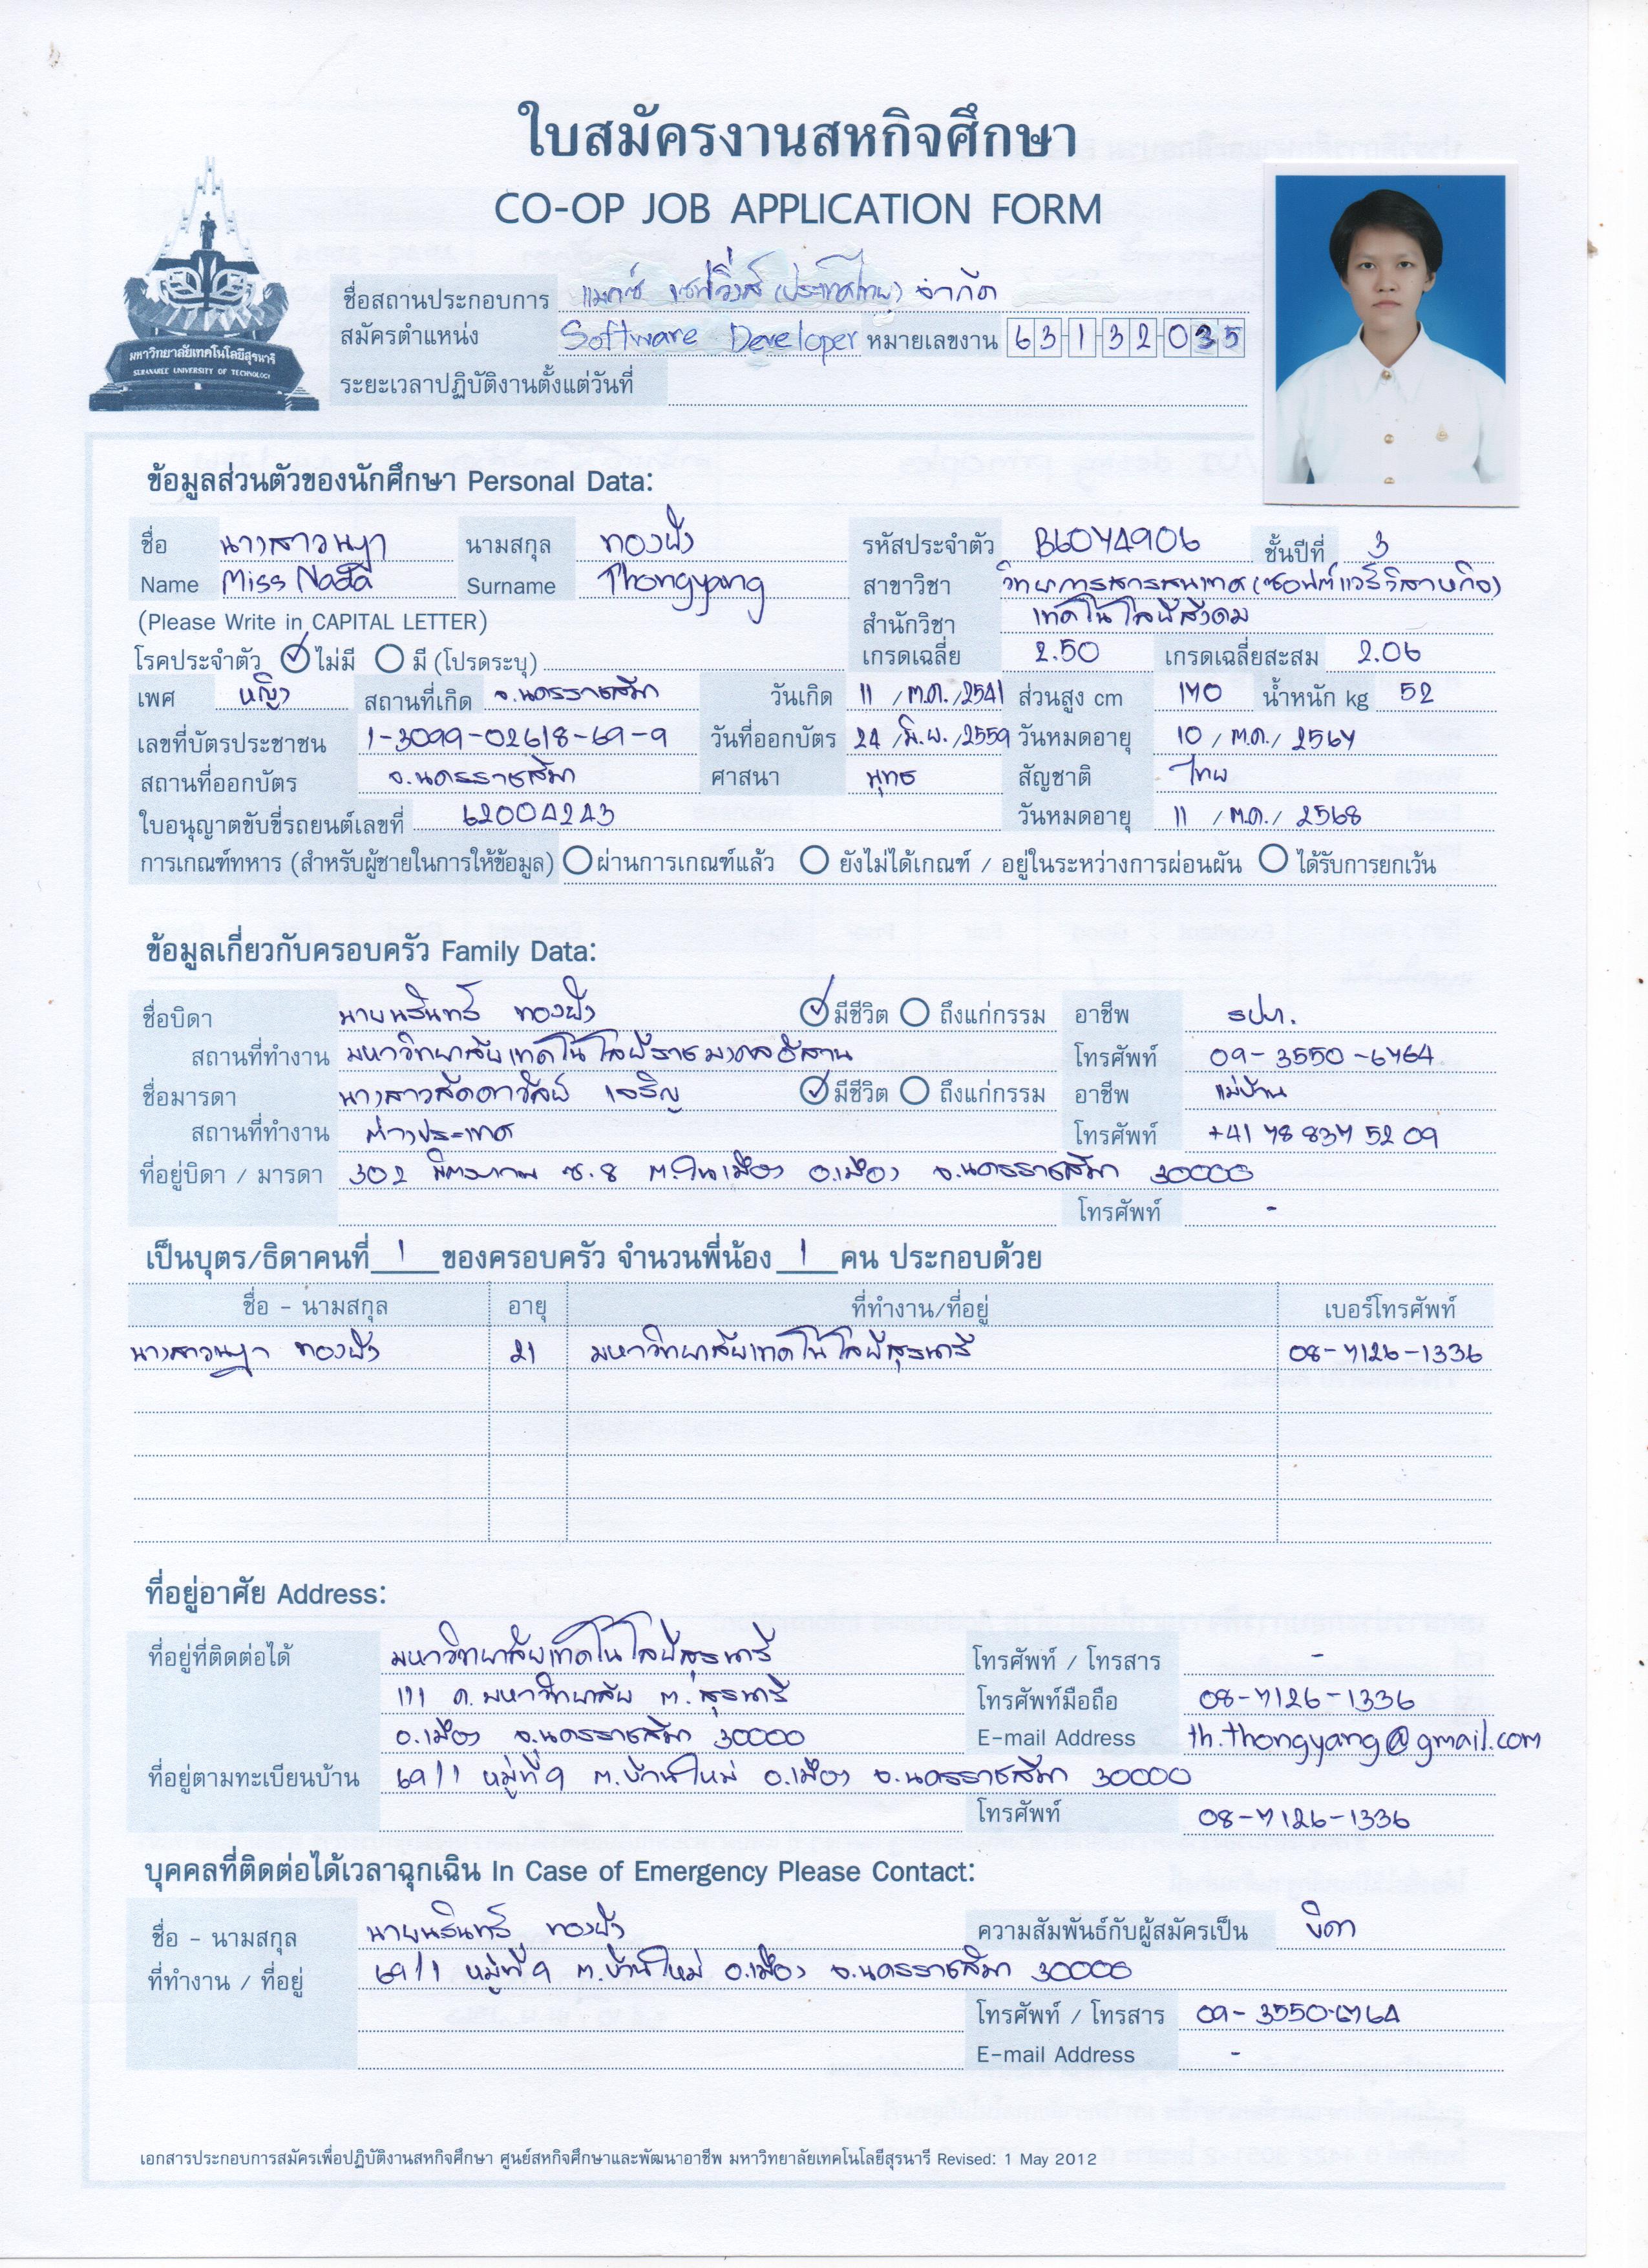 ใบสมัครงานสหกิจศึกษา
CO-OP JOB APPLICATION FORM
มหาวิทยาลัยเทคโนโลยีสุรนารี
SURANAREE UNIVERSITY OF TECHNOLOGY
ชื่อสถานประกอบการ แมกซ์ เซฟวิ่งส์ (ประเทศไทย) จำกัด
สมัครตำแหน่ง Software Developer หมายเลขงาน 63-1-32-035
ระยะเวลาปฏิบัติงานตั้งแต่วันที่
ข้อมูลส่วนตัวของนักศึกษา Personal Data:
ชื่อ นางสาวนฎา นามสกุล ทองยัง รหัสประจำตัว B6074906 ชั้นปีที่ 3
Name Miss Nada Surname Thongyang สาขาวิชา วิทยาการสารสนเทศ (ซอฟต์แวร์วิสาหกิจ)
(Please Write in CAPITAL LETTER) สำนักวิชา เทคโนโลยีสังคม
โรคประจำตัว ไม่มี มี (โปรดระบุ) เกรดเฉลี่ย 2.50 เกรดเฉลี่ยสะสม 2.06
เพศ หญิง สถานที่เกิด จ.นครราชสีมา วันเกิด 11 / ต.ค. / 2541 ส่วนสูง cm 170 น้ำหนัก kg 52
เลขที่บัตรประชาชน 1-3099-02618-69-9 วันที่ออกบัตร 24 / มิ.ย. / 2559 วันหมดอายุ 10 / ต.ค. / 2567
สถานที่ออกบัตร จ.นครราชสีมา ศาสนา พุทธ สัญชาติ ไทย
ใบอนุญาตขับขี่รถยนต์เลขที่ 62004243 วันหมดอายุ 11 / ต.ค. / 2568
การเกณฑ์ทหาร (สำหรับผู้ชายในการให้ข้อมูล) ผ่านการเกณฑ์แล้ว ยังไม่ได้เกณฑ์ / อยู่ในระหว่างการผ่อนผัน ได้รับการยกเว้น
ข้อมูลเกี่ยวกับครอบครัว Family Data:
ชื่อบิดา นายนรินทร์ ทองยัง มีชีวิต ถึงแก่กรรม อาชีพ รปภ.
สถานที่ทำงาน มหาวิทยาลัยเทคโนโลยีราชมงคลอีสาน โทรศัพท์ 09-3550-6764
ชื่อมารดา นางสาวลัดดาวัลย์ เจริญ มีชีวิต ถึงแก่กรรม อาชีพ แม่บ้าน
สถานที่ทำงาน ต่างประเทศ โทรศัพท์ +41 78 837 52 09
ที่อยู่บิดา / มารดา 302 มิตรภาพ ซ.8 ต.ในเมือง อ.เมือง จ.นครราชสีมา 30000
โทรศัพท์ -
เป็นบุตร/ธิดาคนที่ 1 ของครอบครัว จำนวนพี่น้อง 1 คน ประกอบด้วย
ชื่อ - นามสกุล อายุ ที่ทำงาน/ที่อยู่ เบอร์โทรศัพท์
นางสาวนฎา ทองยัง 21 มหาวิทยาลัยเทคโนโลยีสุรนารี 08-7126-1336
ที่อยู่อาศัย Address:
ที่อยู่ที่ติดต่อได้ มหาวิทยาลัยเทคโนโลยีสุรนารี โทรศัพท์ / โทรสาร -
111 ถ.มหาวิทยาลัย ต.สุรนารี โทรศัพท์มือถือ 08-7126-1336
อ.เมือง จ.นครราชสีมา 30000 E-mail Address th.thongyang@gmail.com
ที่อยู่ตามทะเบียนบ้าน 69/1 หมู่ที่ 9 ต.บ้านใหม่ อ.เมือง จ.นครราชสีมา 30000
โทรศัพท์ 08-7126-1336
บุคคลที่ติดต่อได้เวลาฉุกเฉิน In Case of Emergency Please Contact:
ชื่อ - นามสกุล นายนรินทร์ ทองยัง ความสัมพันธ์กับผู้สมัครเป็น บิดา
ที่ทำงาน / ที่อยู่ 69/1 หมู่ที่ 9 ต.บ้านใหม่ อ.เมือง จ.นครราชสีมา 30000
โทรศัพท์ / โทรสาร 09-3550-6764
E-mail Address -
เอกสารประกอบการสมัครเพื่อปฏิบัติงานสหกิจศึกษา ศูนย์สหกิจศึกษาและพัฒนาอาชีพ มหาวิทยาลัยเทคโนโลยีสุรนารี Revised: 1 May 2012